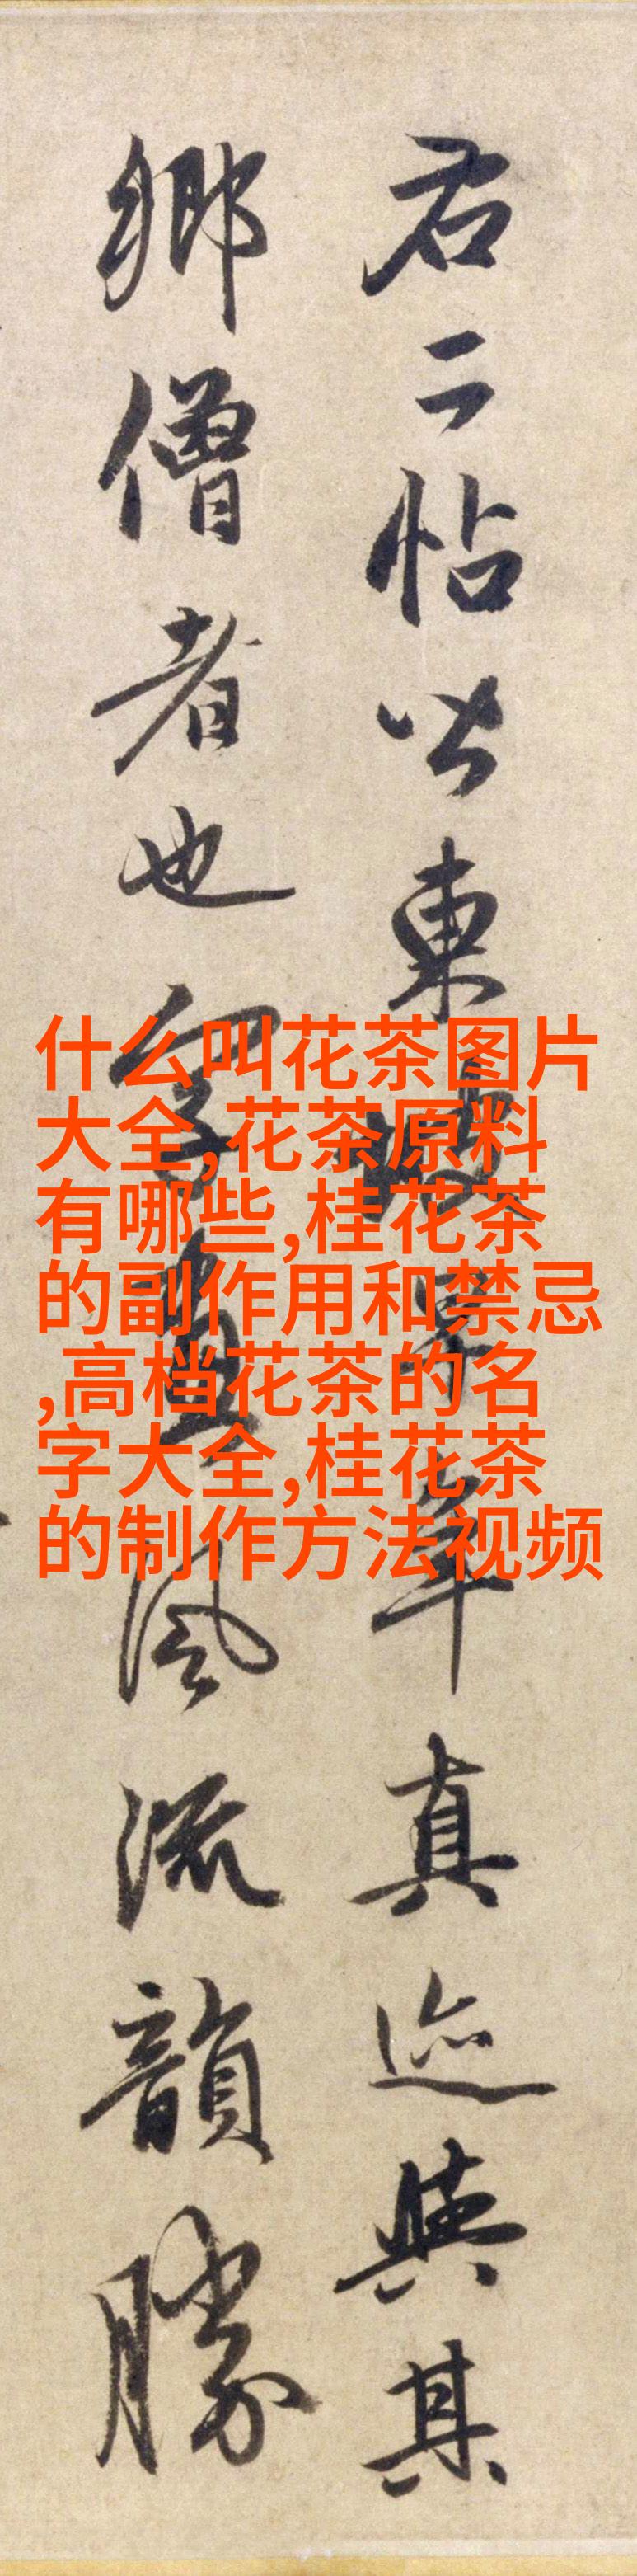 右二帖皆東坡早年真迹與其
鄉僧者也字畫風流韻勝
什么叫花茶图片
大全,花茶原料
有哪些,桂花茶
的副作用和禁忌
,高档花茶的名
字大全,桂花茶
的制作方法视频